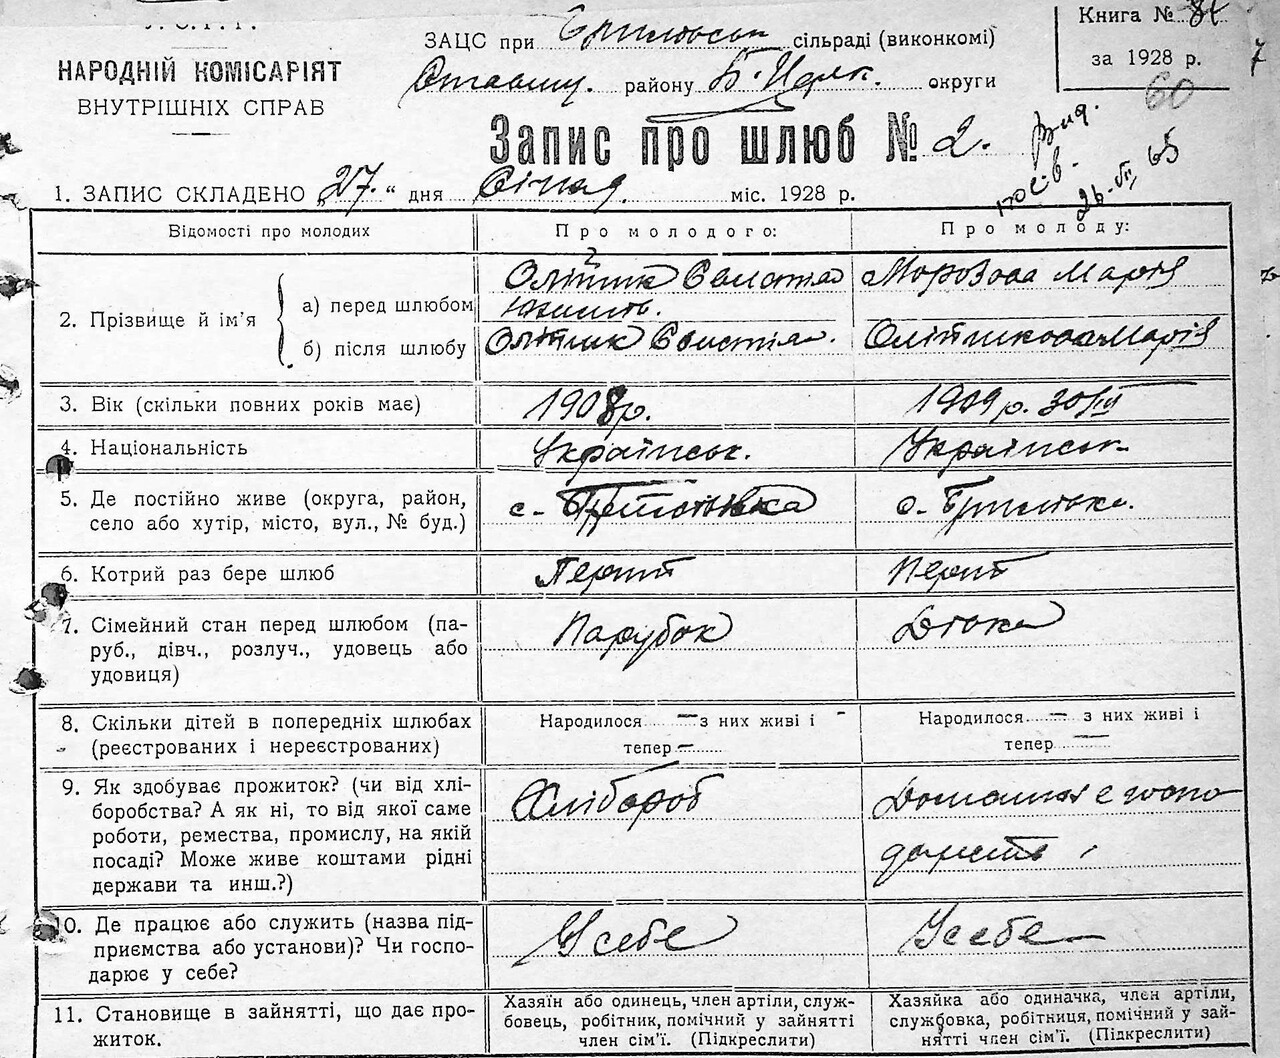 НАРОДНІЙ КОМІСАРІЯТ
ВНУТРІШНІХ СПРАВ
ЗАЦС при сільраді (виконкомі)
району Б. Церк. округи
Книга №
за 1928 р.
60
7
Запис про шлюб № 2.
1. ЗАПИС СКЛАДЕНО „27." дня Січня міс. 1928 р.
Відомості про молодих
Про молодого:
Про молоду:
2. Прізвище й ім'я
а) перед шлюбом
Олійник
Морозова Марія
б) після шлюбу
Олійник
Олійникова Марія
3. Вік (скільки повних років має)
1908 р.
1909 р. 30/III
4. Національність
Українськ.
Українськ.
5. Де постійно живе (округа, район,
село або хутір, місто, вул., № буд.)
с.
с.
6. Котрий раз бере шлюб
Перший
Перший
7. Сімейний стан перед шлюбом (па-
руб., дівч., розлуч., удовець або
удовиця)
Парубок
Дівка
8. Скільки дітей в попередніх шлюбах
(реєстрованих і нереєстрованих)
Народилося — з них живі і -
тепер —
Народилось — з них живі і
тепер —
9. Як здобуває прожиток? (чи від хлі-
боробства? А як ні, то від якої саме
роботи, ремества, промислу, на якій
посаді? Може живе коштами рідні
держави та инш.?)
Хлібороб
Домашнє госпо
дарств
10. Де працює або служить (назва під-
приємства або установи)? Чи госпо-
дарює у себе?
У себе
У себе
11. Становище в зайнятті, що дає про-
житок.
Хазяїн або одинець, член артіли, служ-
бовець, робітник, помічний у зайнятті
член сім'ї. (Підкреслити)
Хазяйка або одиначка, член артіли,
службовка, робітниця, помічний у зай-
нятті член сім'ї. (Підкреслити)